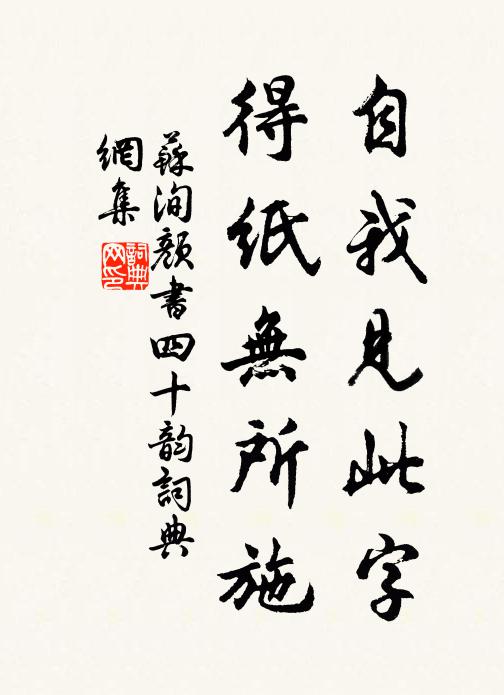 自我見此字
得紙無所施
蘇洵顏書四十韵詞典
網集
詞典
网印